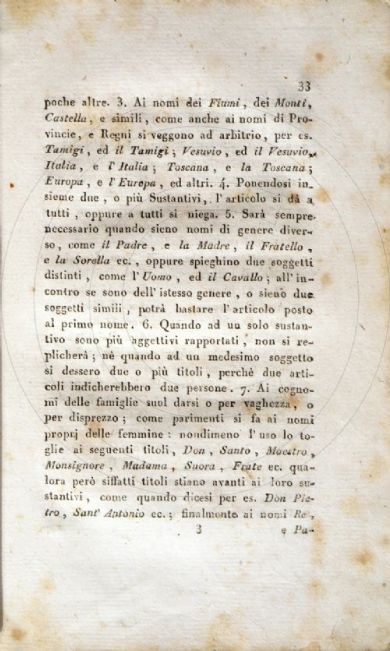 33
poche altre. 3. Ai nomi dei Fiumi, dei Monti,
Castella, e simili, come anche ai nomi di Pro-
vincie, e Regni si veggono ad arbitrio, per es.
Tamigi, ed il Tamigi; Vesuvio, ed il Vesuvio,
Italia, e l'Italia; Toscana, e la Toscana;
Europa, e l'Europa, ed altri. 4. Ponendosi in-
sieme due, o più Sustantivi, l'articolo si dà a
tutti, oppure a tutti si niega. 5. Sarà sempre
necessario quando sieno nomi di genere diver-
so, come il Padre, e la Madre, il Fratello,
e la Sorella ec., oppure spieghino due soggetti
distinti, come l'Uomo, ed il Cavallo; all'in-
contro se sono dell'istesso genere, o sieno due
soggetti simili, potrà bastare l'articolo posto
al primo nome. 6. Quando ad un solo sustan-
tivo sono più aggettivi rapportati, non si re-
plicherà; nè quando ad un medesimo soggetto
si dessero due o più titoli, perchè due arti-
coli indicherebbero due persone. 7. Ai cogno-
mi delle famiglie suol darsi o per vaghezza, o
per disprezzo; come parimenti si fa ai nomi
proprj delle femmine: nondimeno l'uso lo to-
glie ai seguenti titoli, Don, Santo, Maestro,
Monsignore, Madama, Suora, Frate ec. qua-
lora però siffatti titoli stiano avanti ai loro su-
stantivi, come quando dicesi per es. Don Pie-
tro, Sant' Antonio ec.; finalmente ai nomi Re,
3 e Pa-